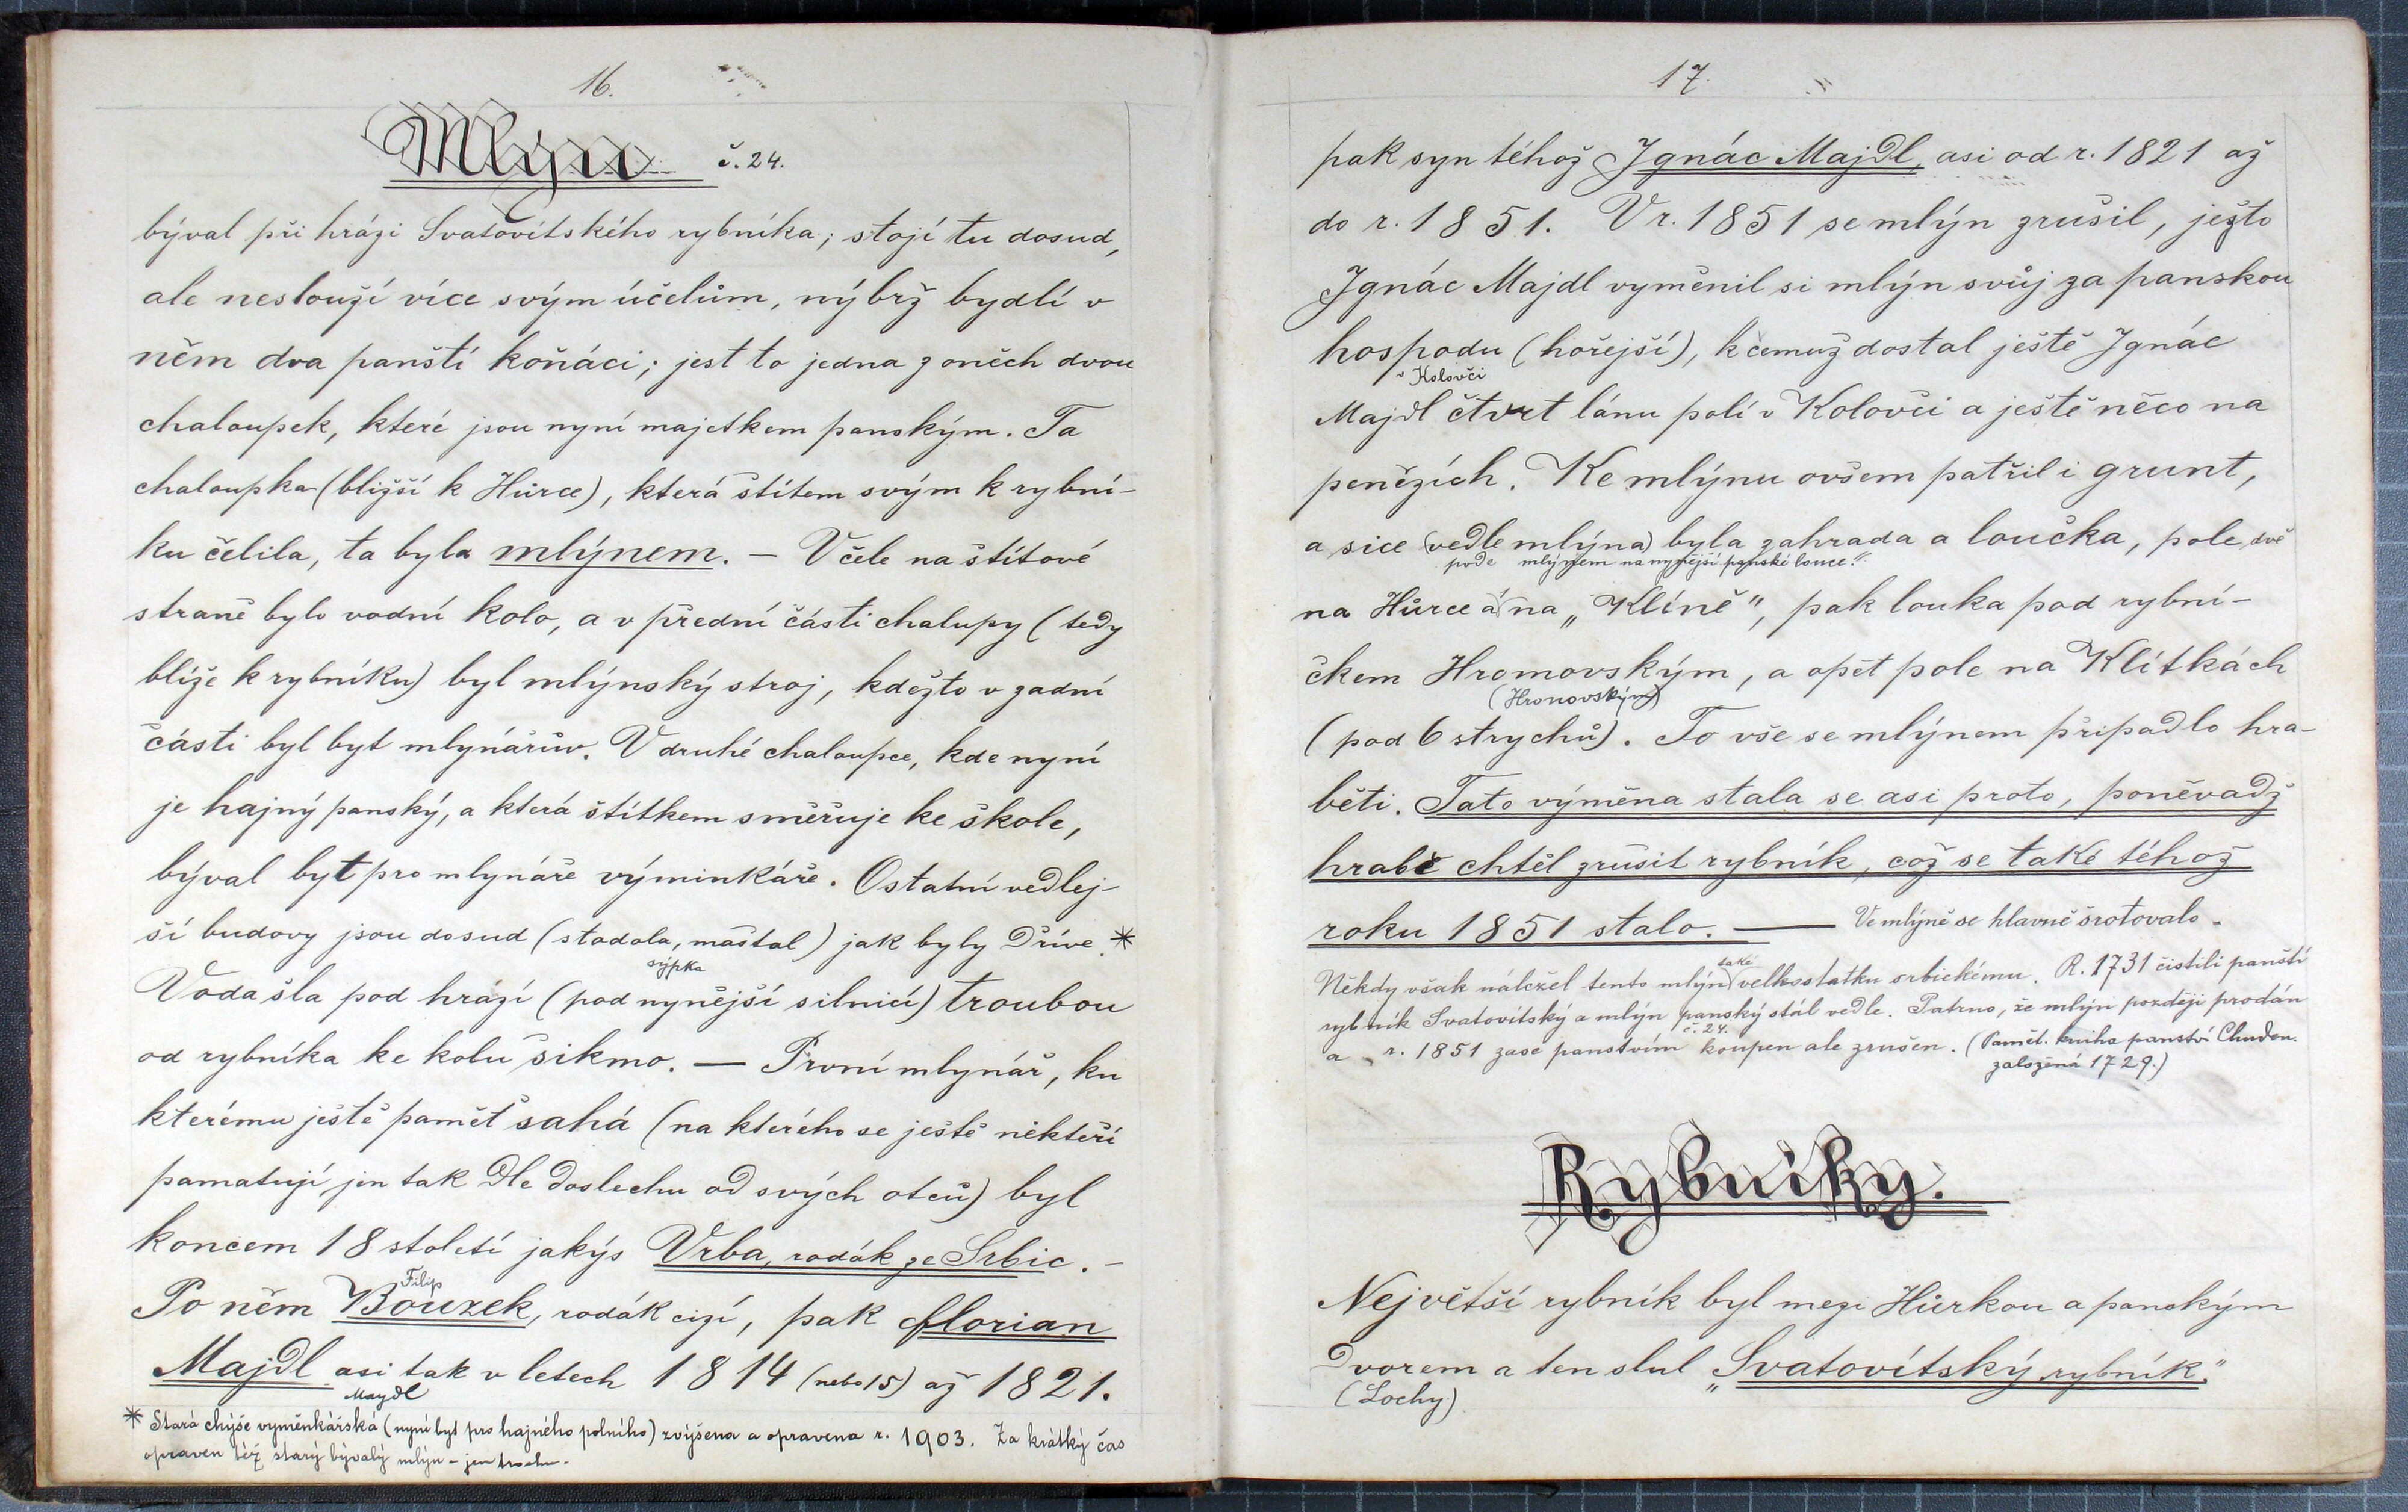 16.
Mlýn č. 24.
býval při hrázi Svatovítského rybníka; stojí tu dosud,
ale neslouží více svým účelům, nýbrž bydlí v
něm dva panští koňáci; jest to jedna z oněch dvou
chaloupek, které jsou nyní majetkem panským. Ta
chaloupka (bližší k Hůrce), která štítem svým k rybní-
ku čelila, ta byla mlýnem. – V čele na štítové
straně bylo vodní kolo, a v přední části chalupy (tedy
blíže k rybníku) byl mlýnský stroj, kdežto v zadní
části byl byt mlynářův. V druhé chaloupce, kde nyní
je hajný panský, a která štítkem směřuje ke škole,
býval byt pro mlynáře výminkáře. Ostatní vedlej-
ší budovy jsou dosud (stodola, maštal) jak byly dříve. *
sýpka
Voda šla pod hrází (pod nynější silnicí) troubou
od rybníka ke kolu šikmo. — První mlynář, ku
kterému ještě paměť sahá (na kterého se ještě někteří
pamatují jen tak dle doslechu od svých otců) byl
koncem 18 století jakýs Vrba, rodák ze Srbic. –
Filip
Po něm Bouzek, rodák cizí, pak Florian
Majdl asi tak v letech 1814 (nebo 15) až 1821.
Maydl
* Stará chýše vyměnkářská (nyní byt pro hajného polního) zvýšena a opravena r. 1903. Za krátký čas
opraven též starý bývalý mlýn – jen trochu.
17.
pak syn téhož Ignác Majdl, asi od r. 1821 až
do r. 1851. V r. 1851 se mlýn zrušil, ježto
Ignác Majdl vyměnil si mlýn svůj za panskou
hospodu (hořejší), k čemuž dostal ještě Ignác
v Kolovči
Majdl čtvrt lánu polí v Kolovči a ještě něco na
penězích. Ke mlýnu ovšem patřil i grunt,
a sice (vedle mlýna) byla zahrada a loučka, pole dvě
pode mlýnem na nynější panské louce."
na Hůrce a na „Klíně", pak louka pod rybní-
čkem Hromovským, a opět pole na Klítkách
(Hronovským)
(pod 6 strychů). To vše se mlýnem připadlo hra-
běti. Tato výměna stala se asi proto, poněvadž
hrabě chtěl zrušit rybník, což se také téhož
roku 1851 stalo. — Ve mlýně se hlavně šrotovalo.
také
Někdy však náležel tento mlýn velkostatku srbickému. R. 1731 čistili panští
rybník Svatovítský a mlýn panský stál vedle. Patrno, že mlýn později prodán
č. 24.
a r. 1851 zase panstvím koupen ale zrušen. (Pamět. kniha panství Chuden.
založená 1729.)
Rybníky.
Největší rybník byl mezi Hůrkou a panským
dvorem a ten slul „Svatovítský rybník."
(Lochy)